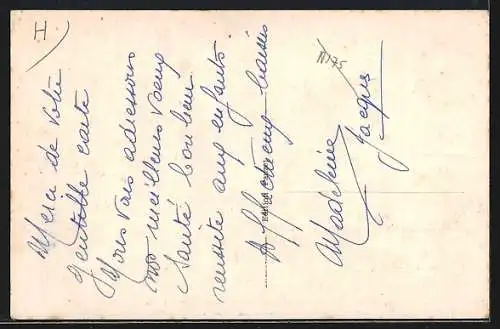 Merci de votre
gentille carte
Nous vous adressons
nos meilleurs vœux
Santé bonheur
reussite aux enfants
Affectueux baisers
Madeleine
Jacques
I